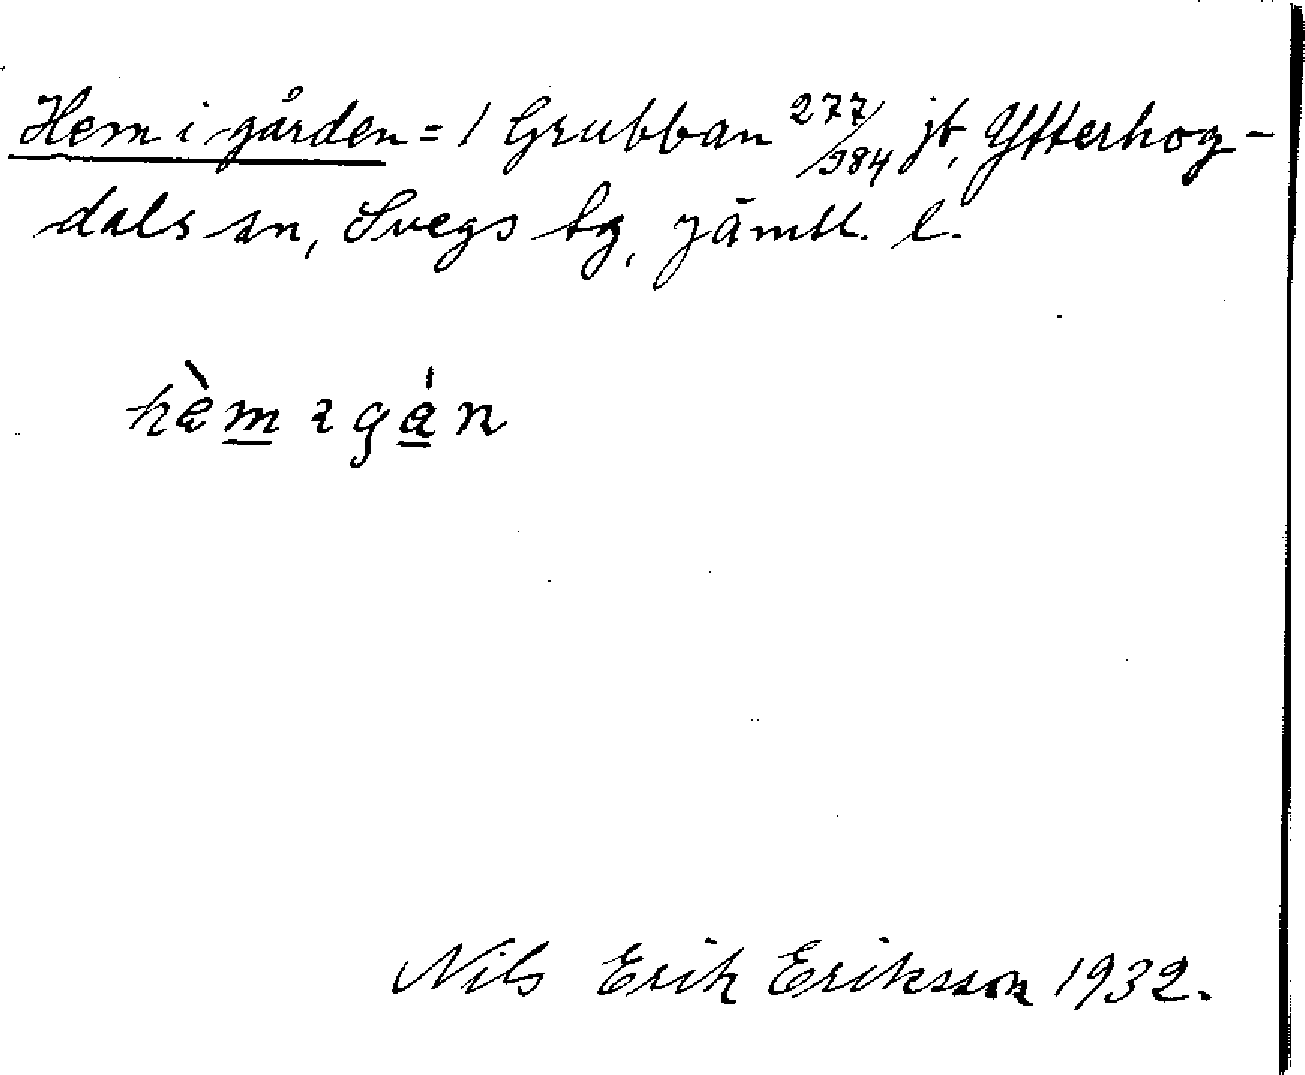 Hem i gården = 1 Grubban 277/984 jb, Ytterhog-
dals sn, Svegs tg, Jämtl. l.
hèm ı gán
Nils Erik Eriksson 1932.